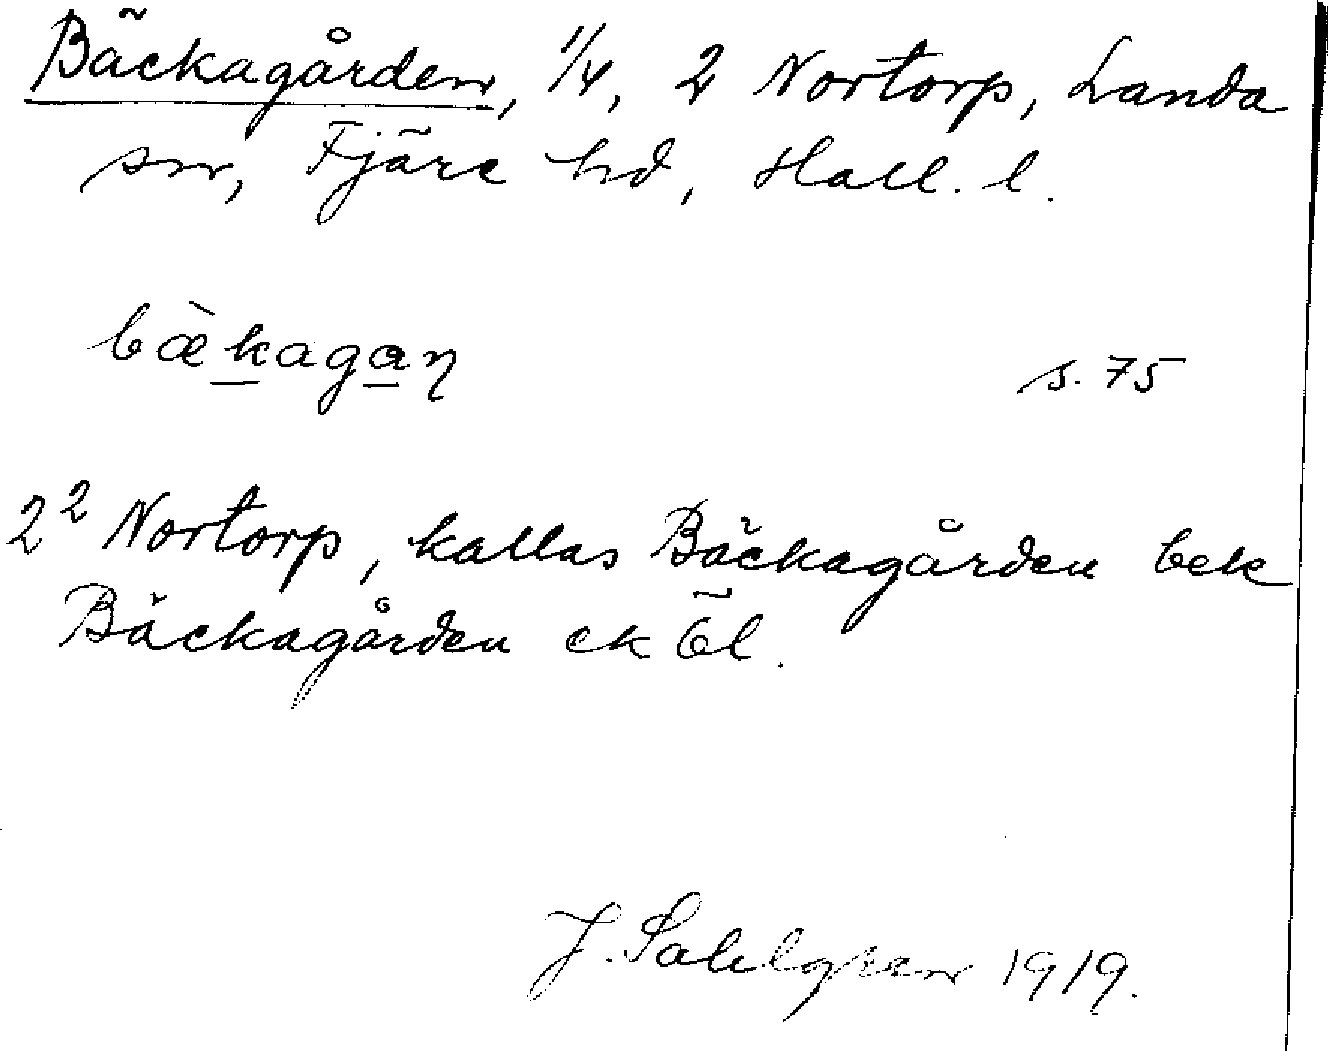 Bäckagården, 1/4, 2 Nortorp, Landa
sn, Fjäre hd, Hall. l.
bæ̀kagaɳ
s. 75
2² Nortorp, kallas Bäckagården bek
Bäckagården ek öl.
J. Sahlgren 1919.